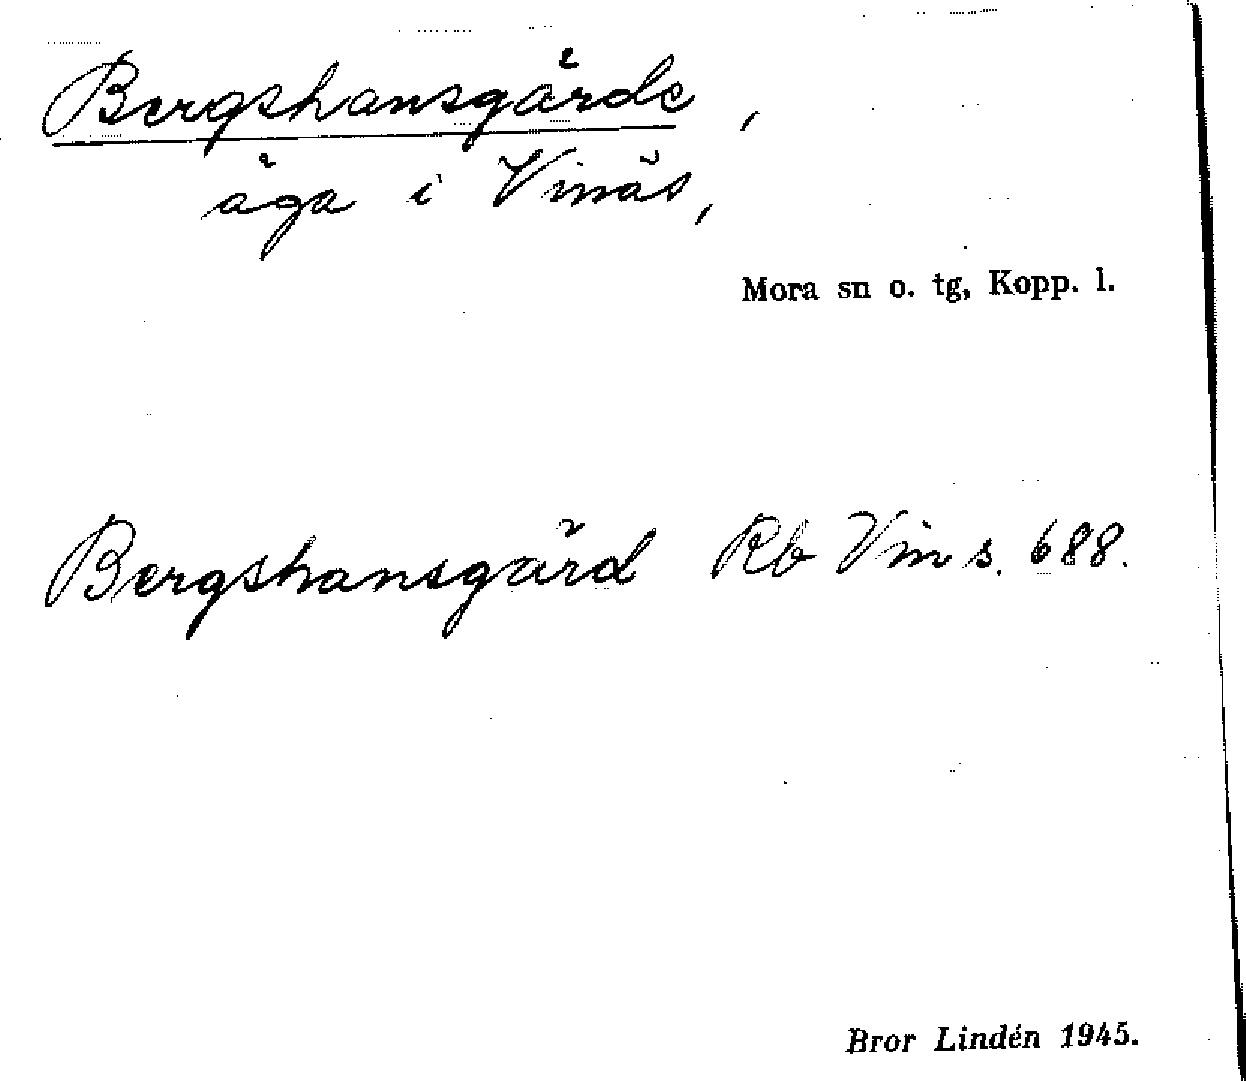 Bergshansgärde,
äga i Vinäs,
Mora sn o. tg, Kopp. l.
Bergshansgärd Rb Vin s. 688.
Bror Lindén 1945.